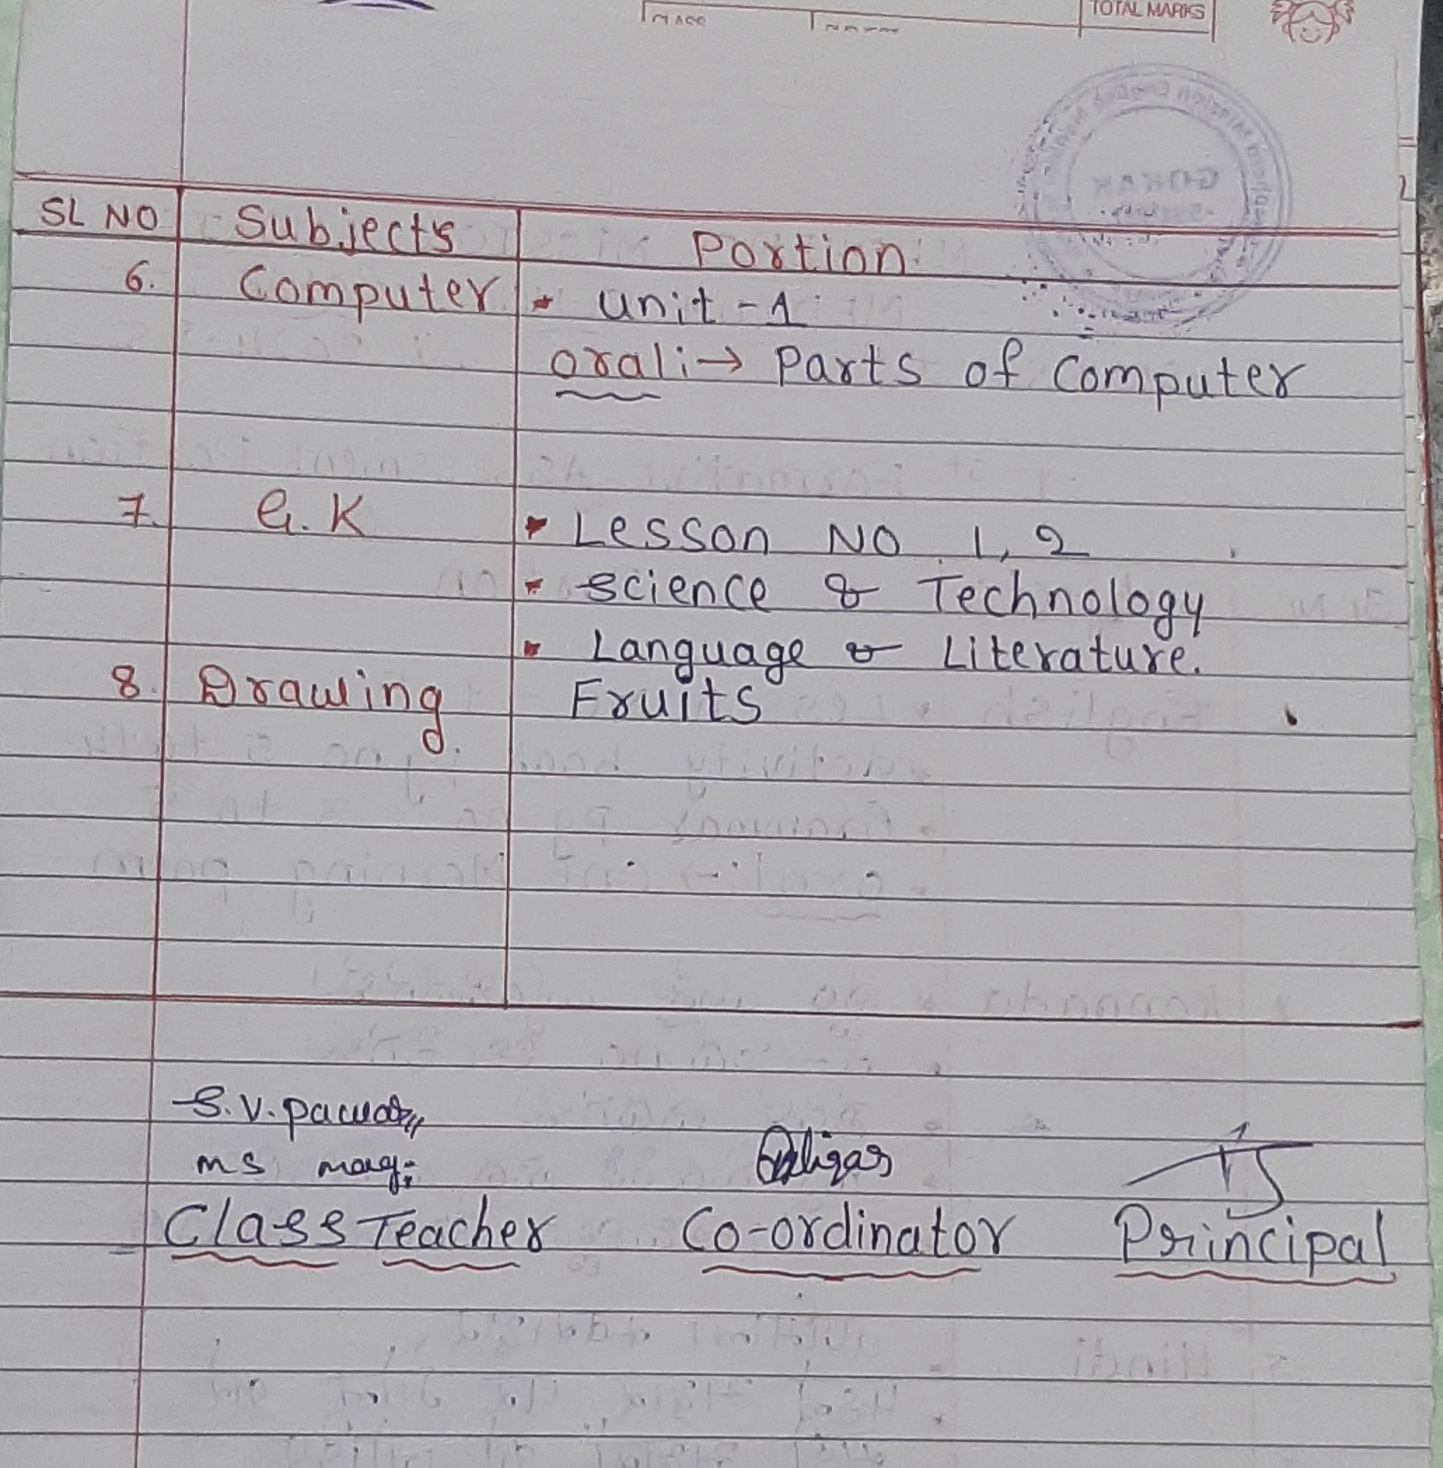 TOTAL MARKS
SL NO Subjects Portion
6. Computer • unit - 1
oral:→ Parts of Computer
7. G.K • Lesson NO 1, 2
• Science & Technology
• Language & Literature.
8. Drawing Fruits
S.V. Pawar
Class Teacher Co-ordinator Principal